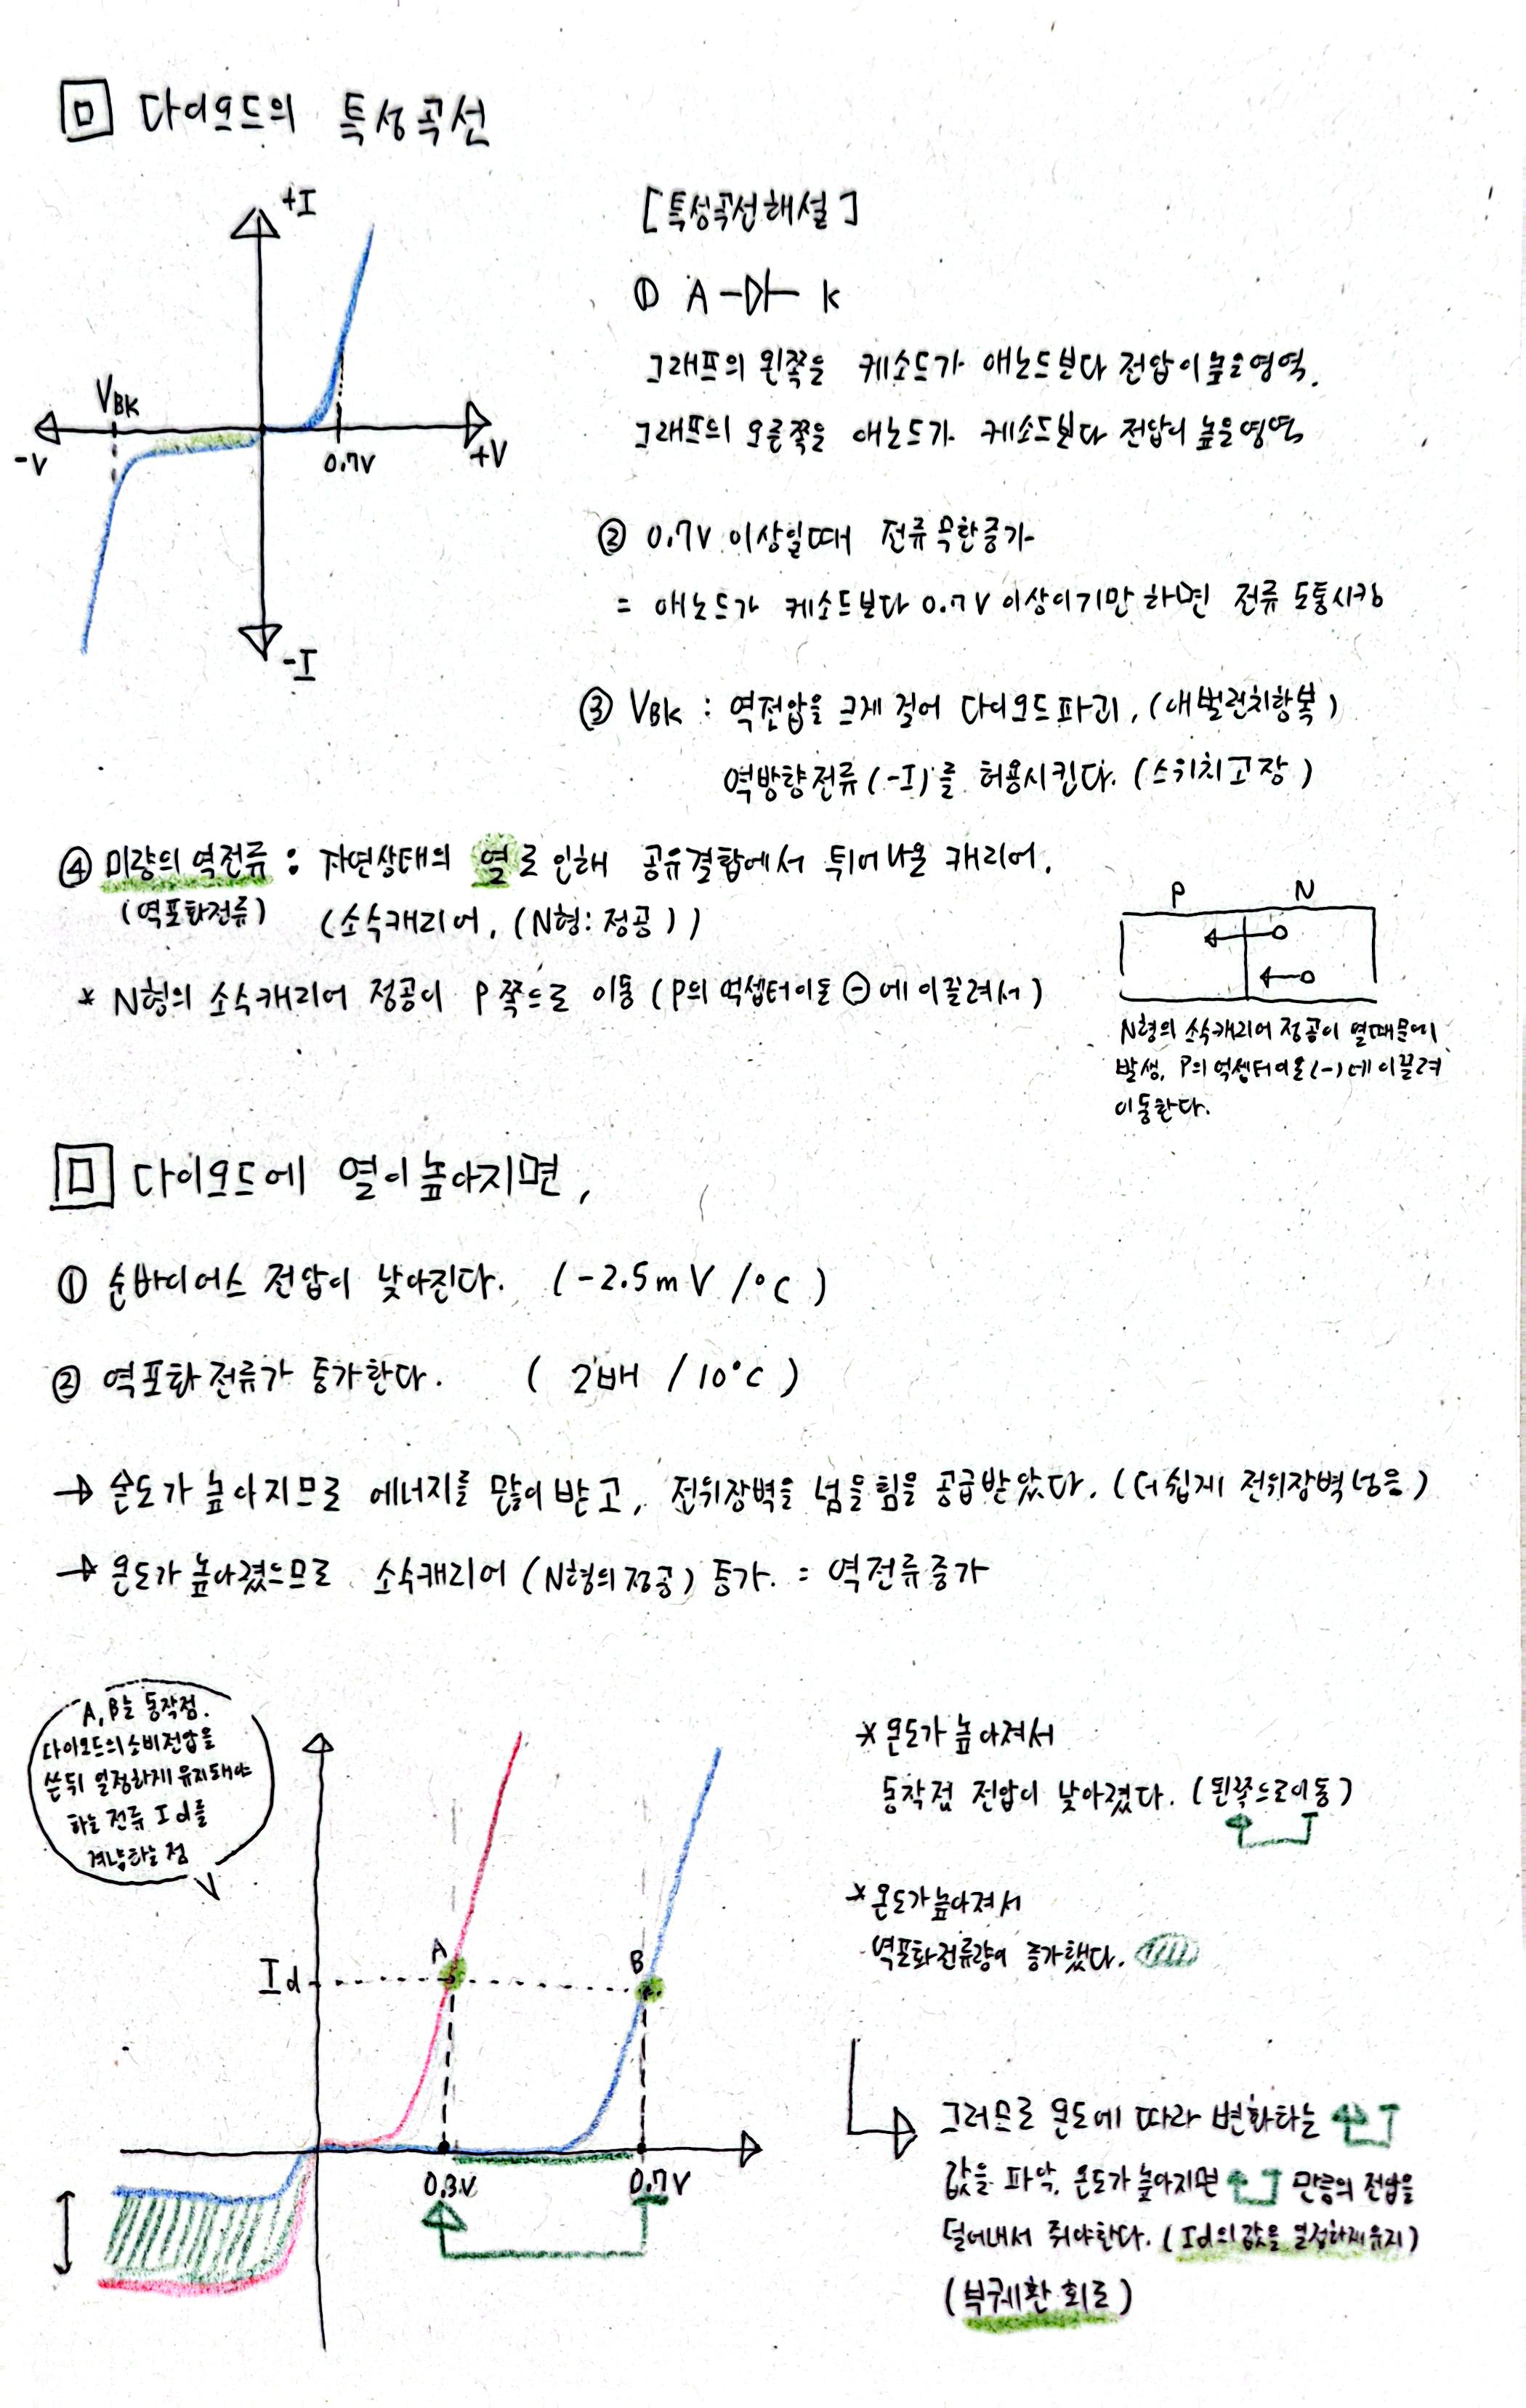 다이오드의 특성곡선
+I
-V
VBK
0.7V
+V
-I
[특성곡선해설]
① A K
그래프의 왼쪽은 케소드가 애노드보다 전압이 높은영역.
그래프의 오른쪽은 애노드가 케소드보다 전압이 높은영역
② 0.7V 이상일때 전류무한증가
= 애노드가 케소드보다 0.7V 이상이기만 하면 전류 도통시킴
③ VBK : 역전압을 크게 걸어 다이오드파괴, (애벌런치항복)
역방향전류(-I)를 허용시킨다. (스위치고장)
④ 미량의 역전류 : 자연상태의 열로 인해 공유결합에서 튀어나온 캐리어.
(역포화전류) (소수캐리어, (N형: 정공))
* N형의 소수캐리어 정공이 P쪽으로 이동 (P의 억셉터이온 ⊖에 이끌려서)
P N
N형의 소수캐리어 정공이 열때문에
발생, P의 억셉터이온(-)에 이끌려
이동한다.
다이오드에 열이 높아지면,
① 순바이어스 전압이 낮아진다. (-2.5mV/°C)
② 역포화 전류가 증가한다. (2배 / 10°C)
→ 온도가 높아지므로 에너지를 많이 받고, 전위장벽을 넘을힘을 공급받았다. (더 쉽게 전위장벽넘음)
→ 온도가 높아졌으므로 소수캐리어 (N형의 정공) 증가. = 역전류증가
A, B는 동작점.
다이오드의 소비전압을
쓴뒤 일정하게 유지돼야
하는 전류 Id를
하는 점
Id
A
B
0.3V
0.7V
* 온도가 높아져서
동작점 전압이 낮아졌다. (왼쪽으로이동)
* 온도가 높아져서
역포화전류량이 증가했다.
그러므로 온도에 따라 변화하는
값을 파악, 온도가 높아지면 만큼의 전압을
덜어내서 줘야한다. (Id의 값을 일정하게 유지)
(부궤환 회로)